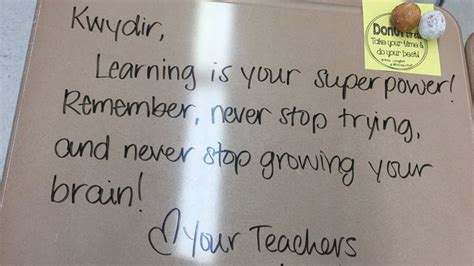 Kwydir,
Learning is your superpower!
Remember, never stop trying,
and never stop growing your
brain!
♡ your Teachers
Donut
Take your time &
do your best!